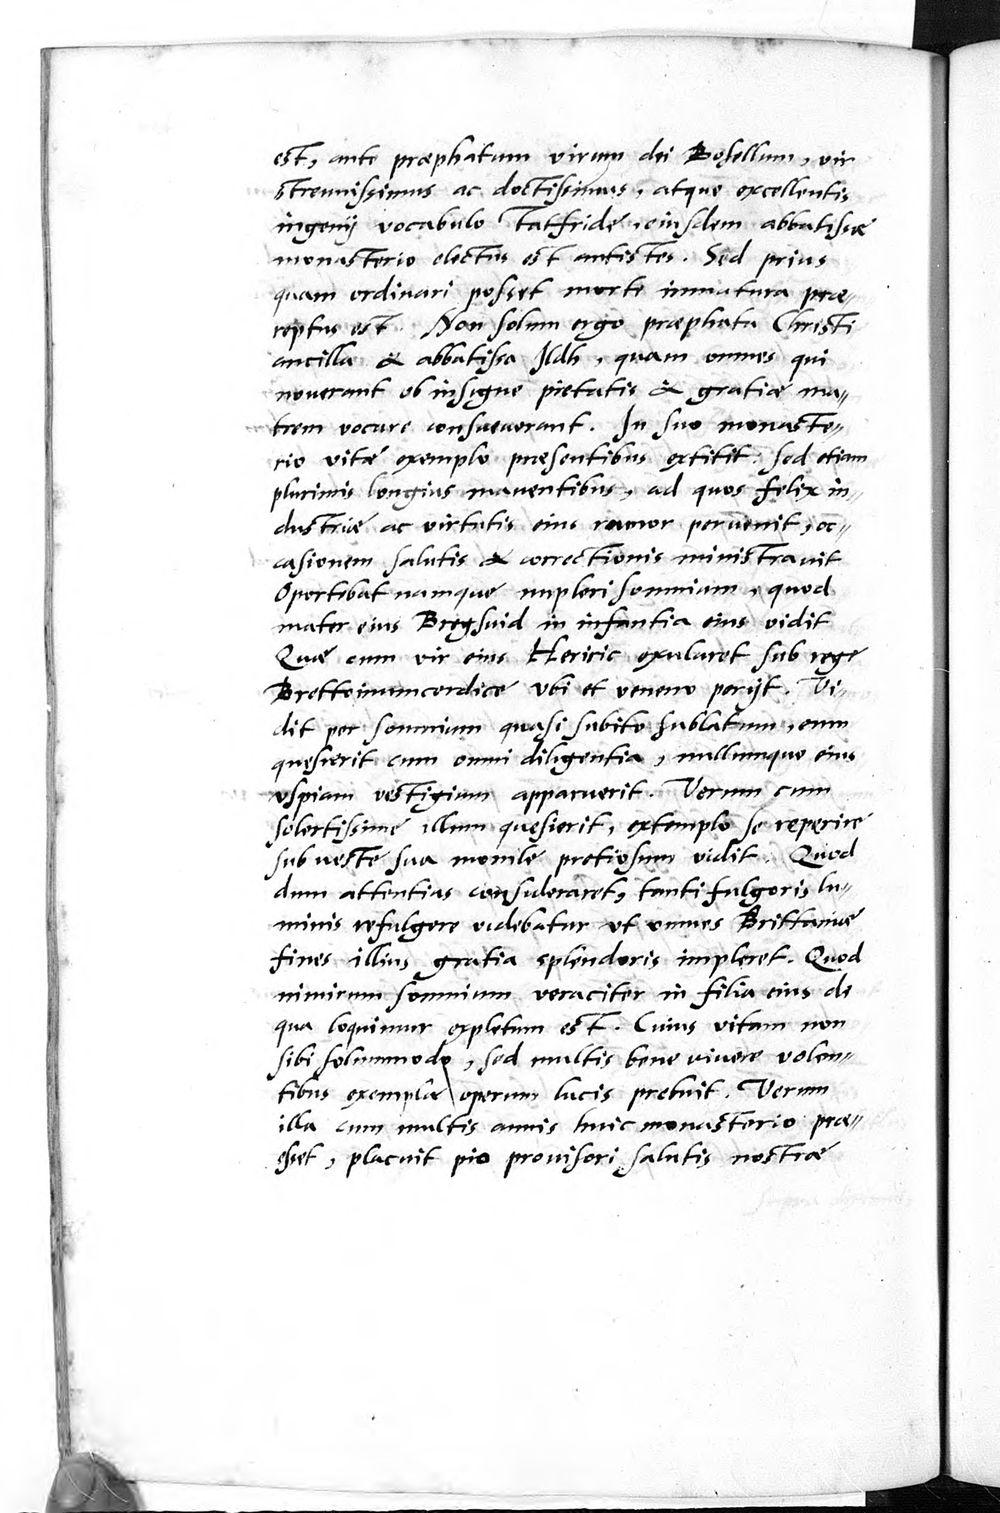 est, ante præphatum virum dei Bosellum, vir
strenuissimus ac doctissimus, atque excellentis
ingenij vocabulo Tatfride, eiusdem abbatissæ
monasterio electus est antistes. Sed prius
quam ordinari posset morte inmatura præ„
reptus est. Non solum ergo præphata Christi
ancilla & abbatissa Ildh, quam omnes qui
noverant ob insigne pietatis & gratiæ ma„
trem vocare consueverant. In suo monaste„
rio vitæ exemplo præsentibus extitit. sed etiam
plurimis longius manentibus, ad quos felix in„
dustriæ ac virtutis eius rumor pervenit, oc„
casionem salutis & correctionis ministravit
Oportebat namque impleri somnium, quod
mater eius Bregsuid in infantia eius vidit
Quæ cum vir eius Heriric exularet sub rege
Brettonumcerdice vbi et veneno perijt. Vi„
dit per somnium quasi subito sublatum, eum
quesierit cum omni diligentia, nullumque eius
vspiam vestigium apparuerit. Verum cum
solertissime illum quesierit, extemplo se reperire
sub veste sua monile pretiosum vidit. Quod
dum attentius consideraret, tanti fulgoris lu„
minis refulgere videbatur ut omnes Brittaniæ
fines illius gratia splendoris impleret. Quod
nimirum somnium veraciter in filia eius de
qua loquimur expletum est. Cuius vitam non
sibi solummodo, sed multis bene vivere volen„
tibus exempla operum lucis prebuit. Verum
illa cum multis annis huic monasterio præ„
esset, placuit pio provisori salutis nostræ